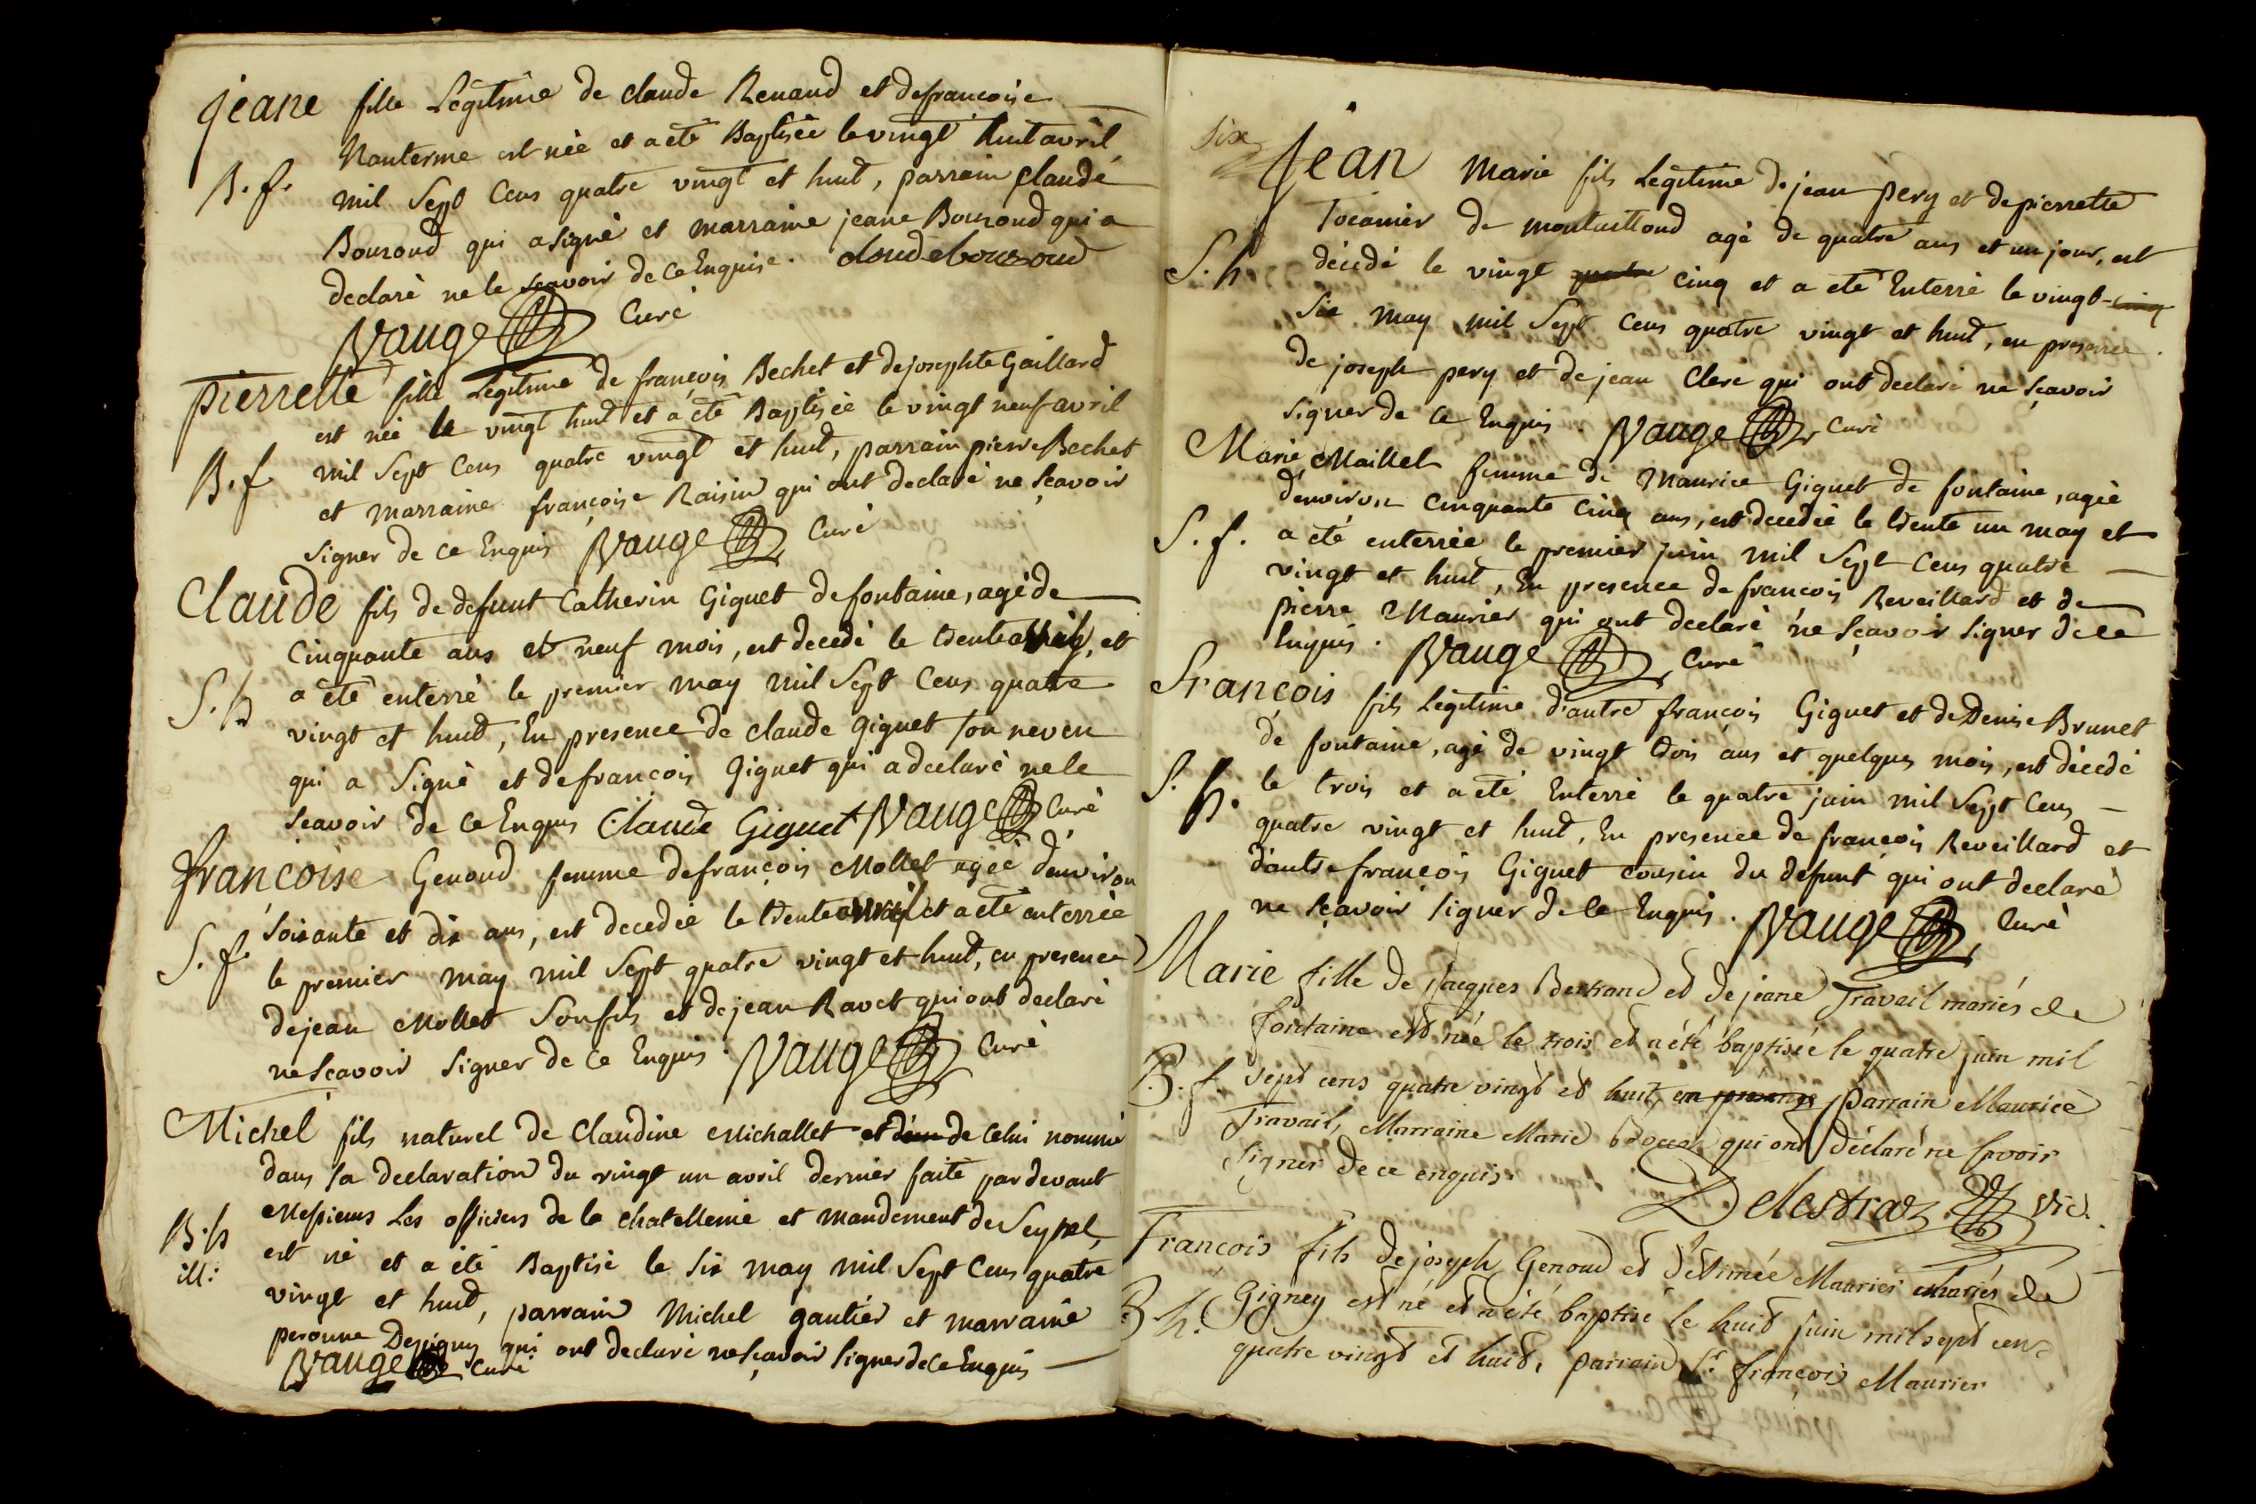 jeane fille Legitime de claude Renaud et de francoise
Nanterme est née et a eté Baptisée le vingt huit avril
B. f.
mil Sept Cens quatre vingt et huit, parrain Claude
Bouzoud qui a signé et marraine jeane Bouzoud qui a
declaré ne le scavoir de ce Enquise. claude bouzoud
Vauge Curé
pierrette fille Legitime de françois Bechet et de josephte Gaillard
est née le vingt huit et a eté Baptisée le vingt neuf avril
B. f
mil Sept Cens quatre vingt et huit, parrain pierre Bechet
et marraine françoise Raisin qui ont declaré ne sçavoir
signer de ce Enquis Vauge Curé
Claude fils de defunt Catherin Giguet de fontaine, agé de
Cinquante ans et neuf mois, est decedé le trente avril, et
S. h
a eté enterré le premier may mil Sept Cens quatre
vingt et huit, En presence de claude Giguet son neveu
qui a Signé et de francois Giguet qui a declaré ne le
scavoir de ce Enquis Claude Giguet Vauge Curé
francoise Genoud femme de françois Mollet agée d'environ
soixante et dix ans, est decedée le trente avril et a eté enterrée
S. f.
le premier may mil Sept quatre vingt et huit, en presence
de jean Mollet Son fils et de jean Ravet qui ont declaré
ne sçavoir signer de ce Enquis. Vauge Curé
Michel fils naturel de Claudine Michallet et de Celui nommé
dans sa declaration du vingt un avril dernier faite par devant
Messieurs Les officiers de la chatellenie et mandement de Seyssel,
B. h
ill:
est né et a eté Baptisé le Six may mil Sept Cens quatre
vingt et huit, parrain Michel gautier et marraine
peronne qui ont declaré ne sçavoir signer de ce Enquis
Vauge Curé
Six
Jean Marie fils Legitime de jean pery et de pierrette
Tocanier de agé de quatre ans et un jour, est
S. h
décedé le vingt quatre cinq et a eté Enterré le vingt-cinq
Six may mil Sept Cens quatre vingt et huit, en presence.
de joseph pery et de jean Clerc qui ont declaré ne sçavoir
signer de ce Enquis. Vauge Curé
Marie Maillet femme de Maurice Giguet de fontaine, agée
d'environ cinquante cinq ans, est decedée le trente un may et
S. f.
a eté enterrée le premier juin mil Sept Cens quatre
vingt et huit, En presence de françois Reveillard et de
pierre Maurier qui ont declaré ne sçavoir signer de ce
Enquis. Vauge Curé
Francois fils Legitime d'autre françois Giguet et de Denise Brunet
de fontaine, agé de vingt trois ans et quelques mois, est décedé
S. h.
le trois et a eté Enterré le quatre juin mil Sept Cens
quatre vingt et huit, En presence de françois Reveillard et
d'autre françois Giguet cousin du defunt qui ont declaré
ne sçavoir signer de ce Enquis. Vauge Curé
Marie fille de jacques Bertrand et de jeane Travail mariés de
fontaine est née le trois et a été baptisée le quatre juin mil
B. f.
sept cens quatre vingt et huit, en presence parrain Maurice
Travail, Marraine Marie qui ont déclaré ne savoir
signer de ce enquis.
Delestraz Vic.
François fils de joseph Genoud et d'Etimée Maurier mariés de
Gigney est né et a été baptisé le huit juin mil sept cens
B. h.
quatre vingt et huit, parrain Sr. françois Maurier